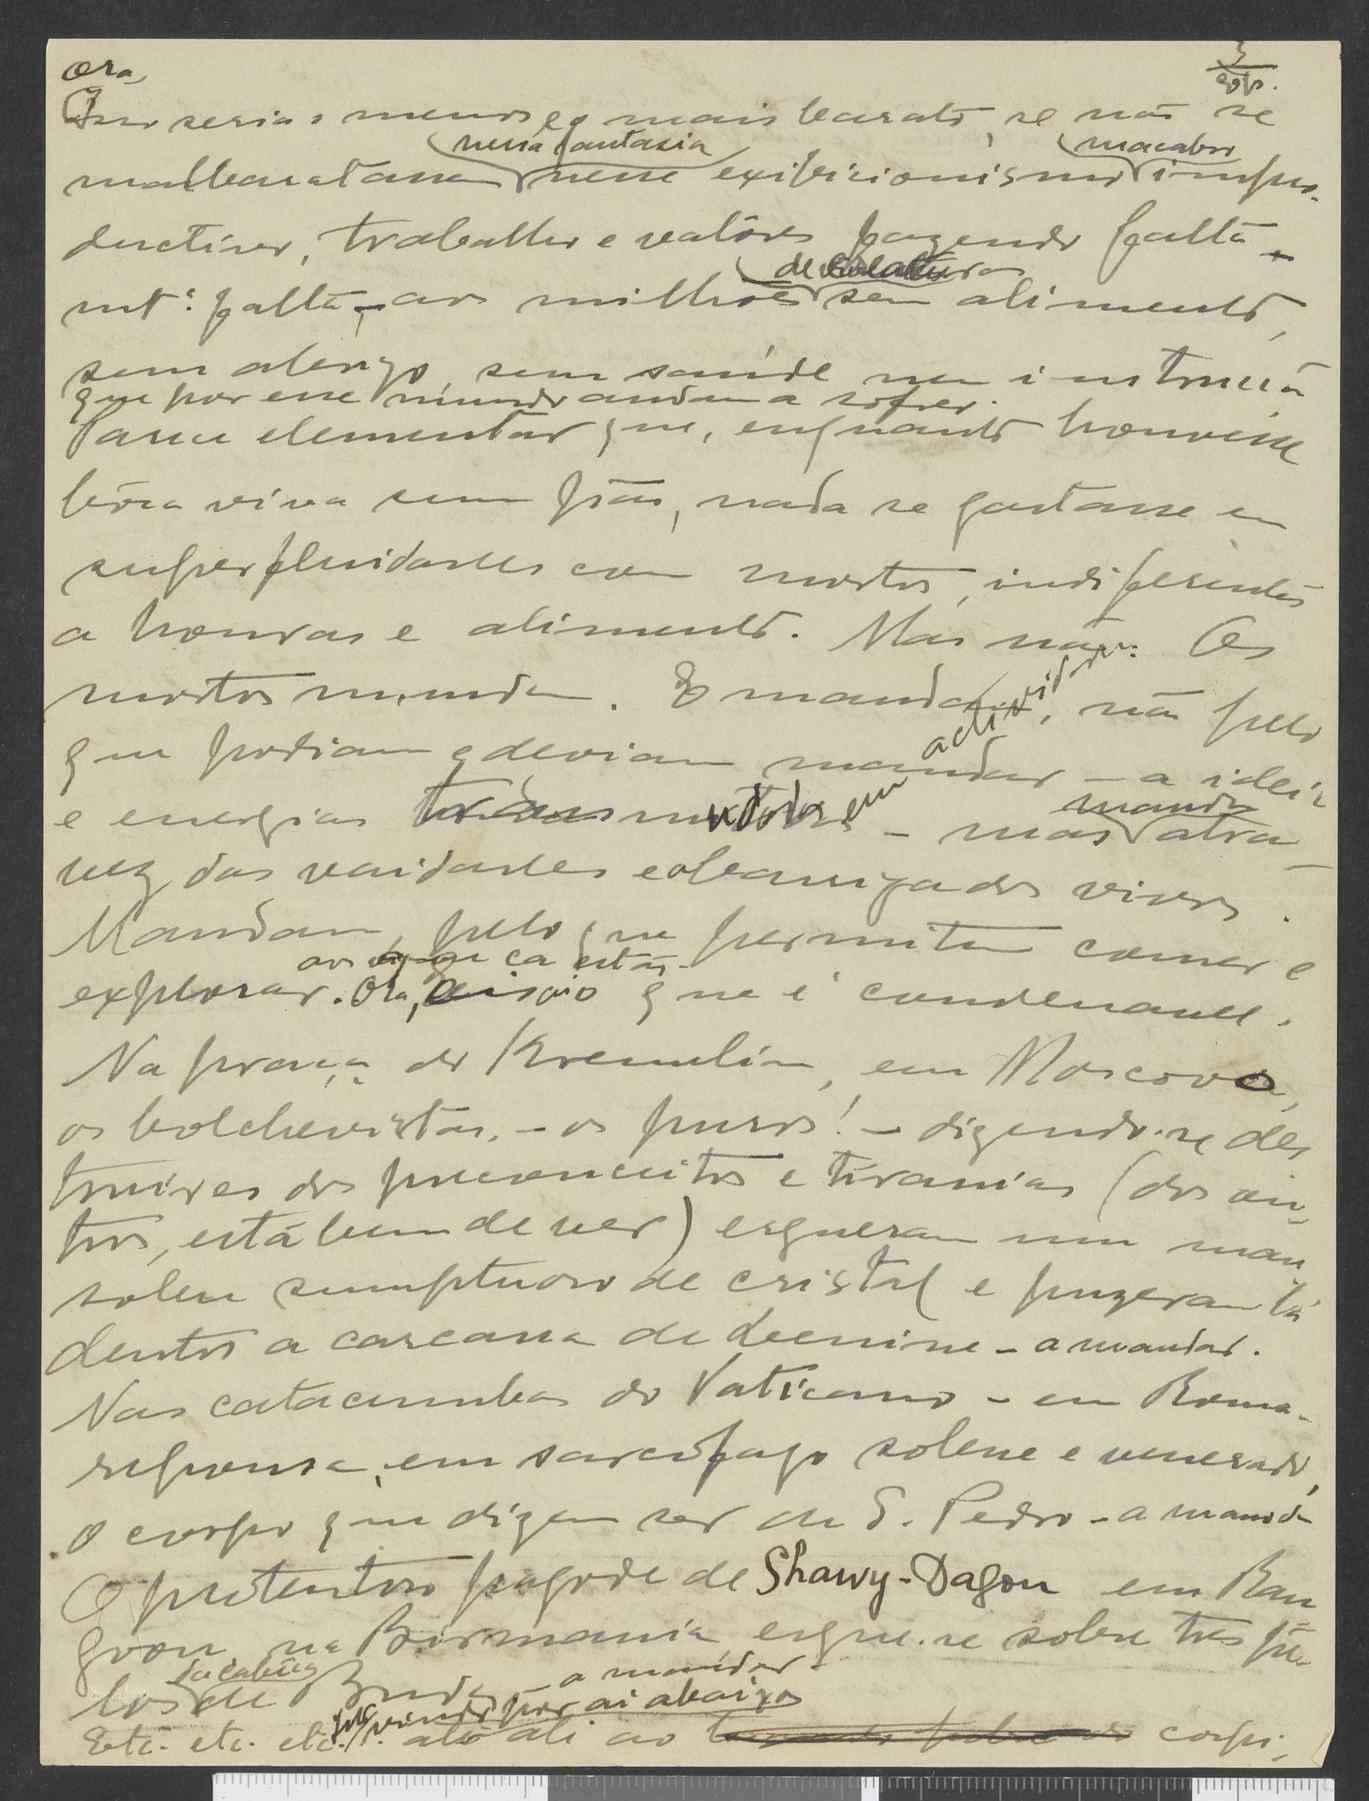 Ora,
Isso seria menos e mais barato, se não se
nessa fantasia macabro
malbaratasse nesse exibicionismo impro-
ductivo, trabalho e valôres fazendo falta -
mtª falta - aos milhões de creaturas sem alimento,
sem abrigo, sem saúde nem instrução
que por esse mundo andam a sofrer.
Parece elementar que, enquanto houvesse
bôca viva sem pão, nada se gastasse em
superfluidades com mortos, indiferentes
a honras e alimento. Mas não: Os
mortos mandam. E mandam, não pelo
que podiam e deviam mandar - a ideia
e energias transmutadas em actividades - mas mando atra-
vez das vaidades e ganga dos vivos.
Mandam, pelo que permitem comer e
aos que cá estão
explorar. Ora, é isso que é condenavel.
Na praça do Kremlin, em Moscovo,
os bolchevistas, - os puros! - dizendo-se des
truires dos preconceitos e tiranias (dos ou-
tros, está bem de ver) ergueram um mau
soleu sumptuoso de cristal e puzeram lá
dentro a carcassa de Lenine - a mandar.
Nas catacumbas do Vaticano - em Roma -
repousa, em sarcófago solene e venerado,
o corpo que dizem ser de S. Pedro - a mandar
O pretentoso pagode de Shawy-Dagon em Ran
goon na Birmania ergue-se sobre tres pê-
los da cabeça de Buda a mandar.
por vindo por ai abaixo
Etc. etc. etc. até ali ao corpi-